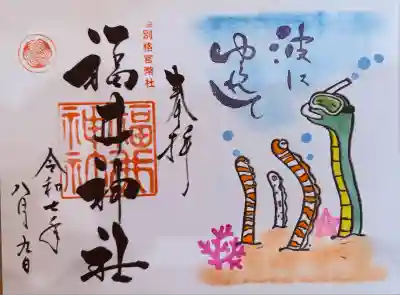 波に
ゆれて
奉拝
別格官幣社
福井神社
福井
神社
令和七年
八月九日